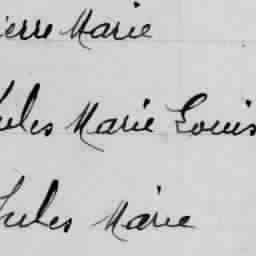 ierre Marie
ules Marie Louis
Jules Marie